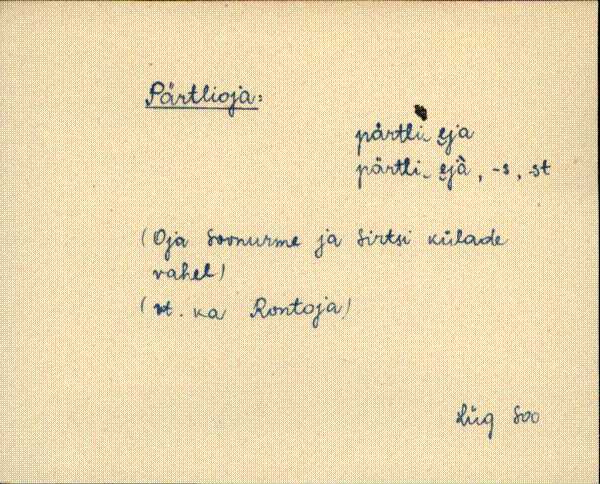 Pärtlioja:
pärtli_ẹja
pärtli_ẹjà, -s, -st
(Oja Soonurme ja Sirtsi külade
vahel)
(vt. ka Rontoja)
Lüg Soo